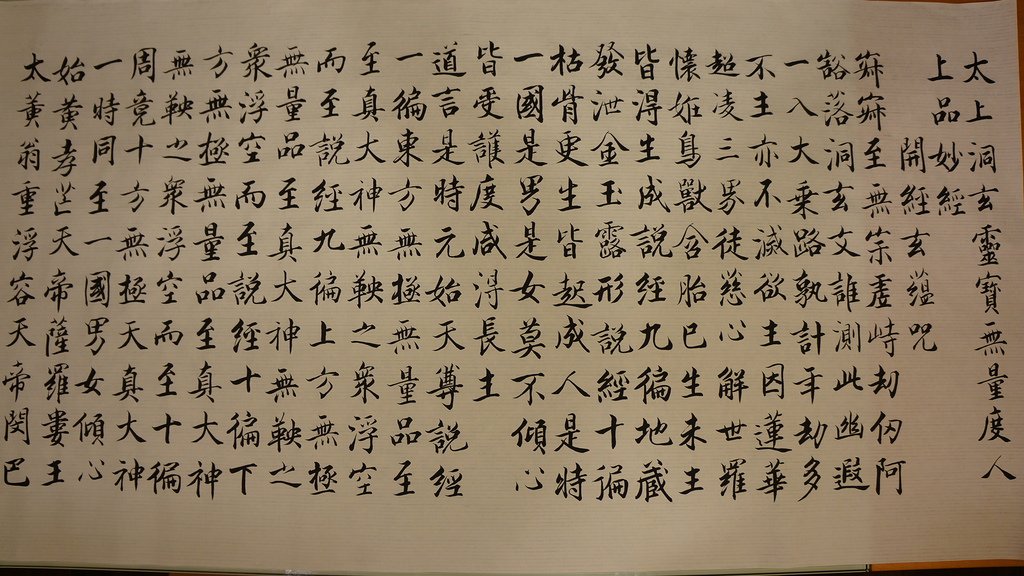 太上洞玄靈寶無量度人
上品妙經
開經玄蘊咒
寂寂至無宗虛峙劫仞阿
豁落洞玄文誰測此幽遐
一入大乗路孰計年劫多
不生亦不滅欲生因蓮華
超凌三界徒慈心解世羅
懷妊鳥獸含胎已生未生
皆得生成說經九徧地藏
發泄金玉露形說經十徧
枯骨更生皆起成人是時
一國是男是女莫不傾心
皆受護度咸得長生
道言是時元始天尊說經
一徧東方無極無量品至
至真大神無鞅之衆浮空
而至說經九徧上方無極
無量品至真大神無鞅之
衆浮空而至說經十徧下
方無極無量品至真大神
無鞅之衆浮空而至十徧
周竟十方無極天真大神
一時同至一國男女傾心
始黃孝芒天帝薩羅婁王
太黃翁重浮容天帝閔巴